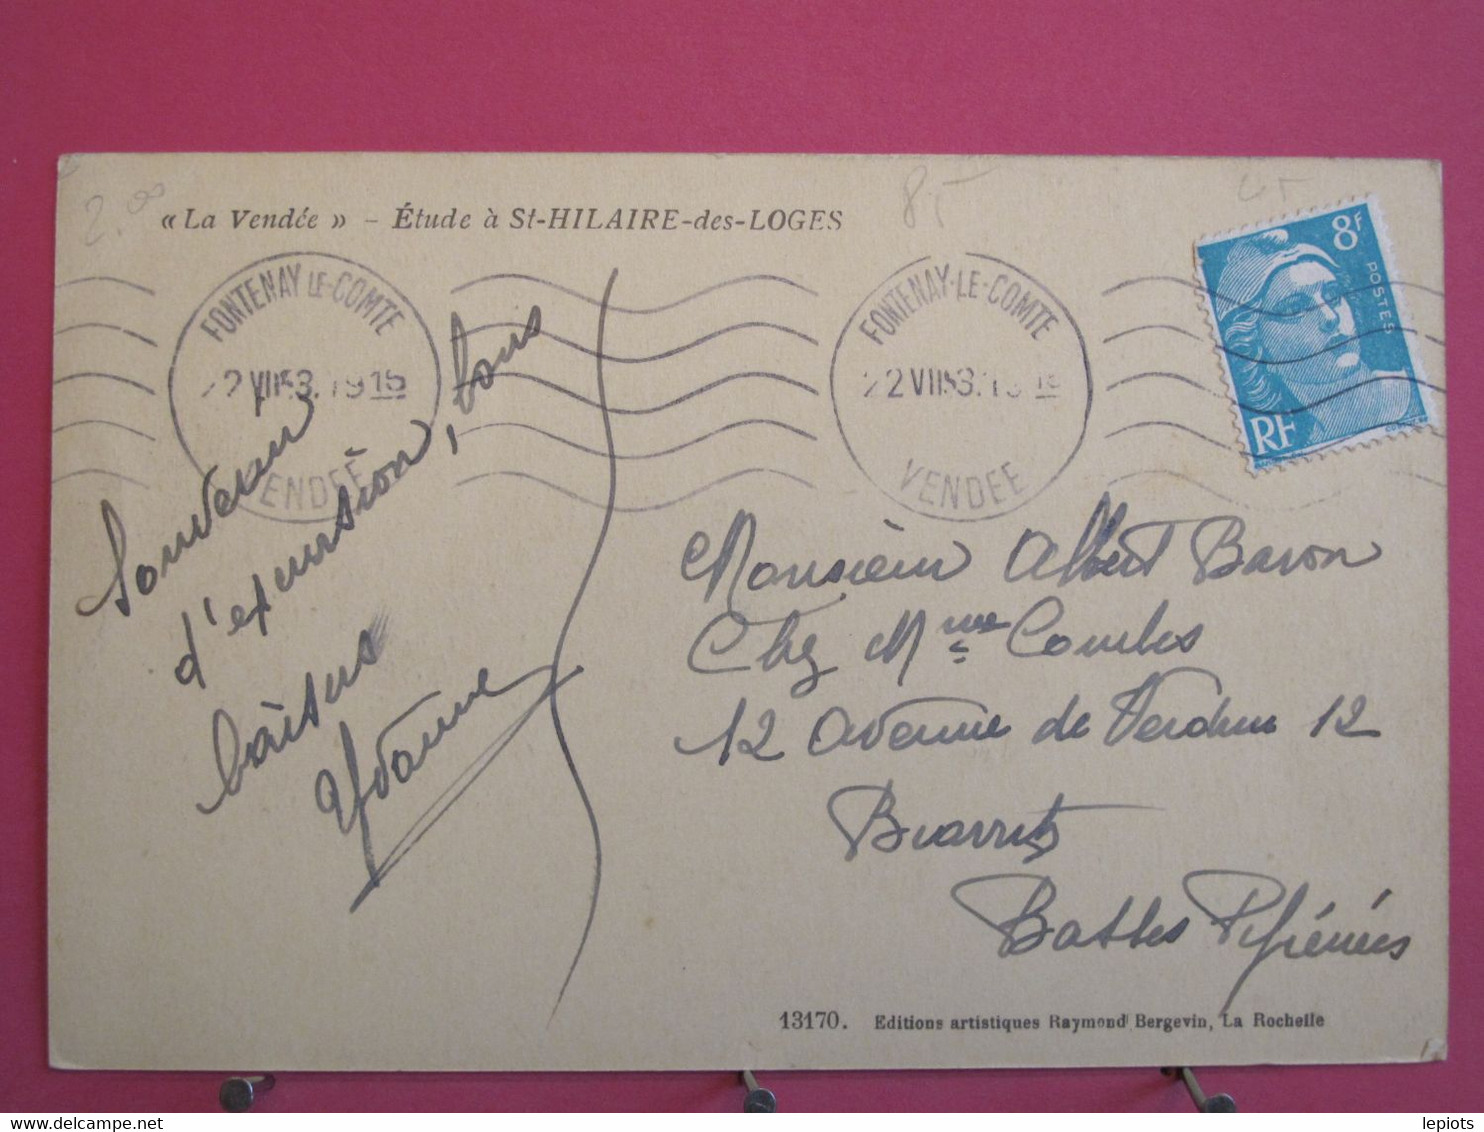 2.00
85
« La Vendée » – Étude à St-HILAIRE-des-LOGES
8F
POSTES
RF
FONTENAY-LE-COMTE
22 VII 53. 19 15
VENDEE
FONTENAY-LE-COMTE
22 VII 53. 19 15
VENDEE
Souvenir
d'excursion, bons
baisers
Yvonne
Monsieur Albert Baron
Chez Mme Combes
12 Avenue de Verdun 12
Biarritz
Basses Pyrénées
13170. Editions artistiques Raymond Bergevin, La Rochelle
lepiots